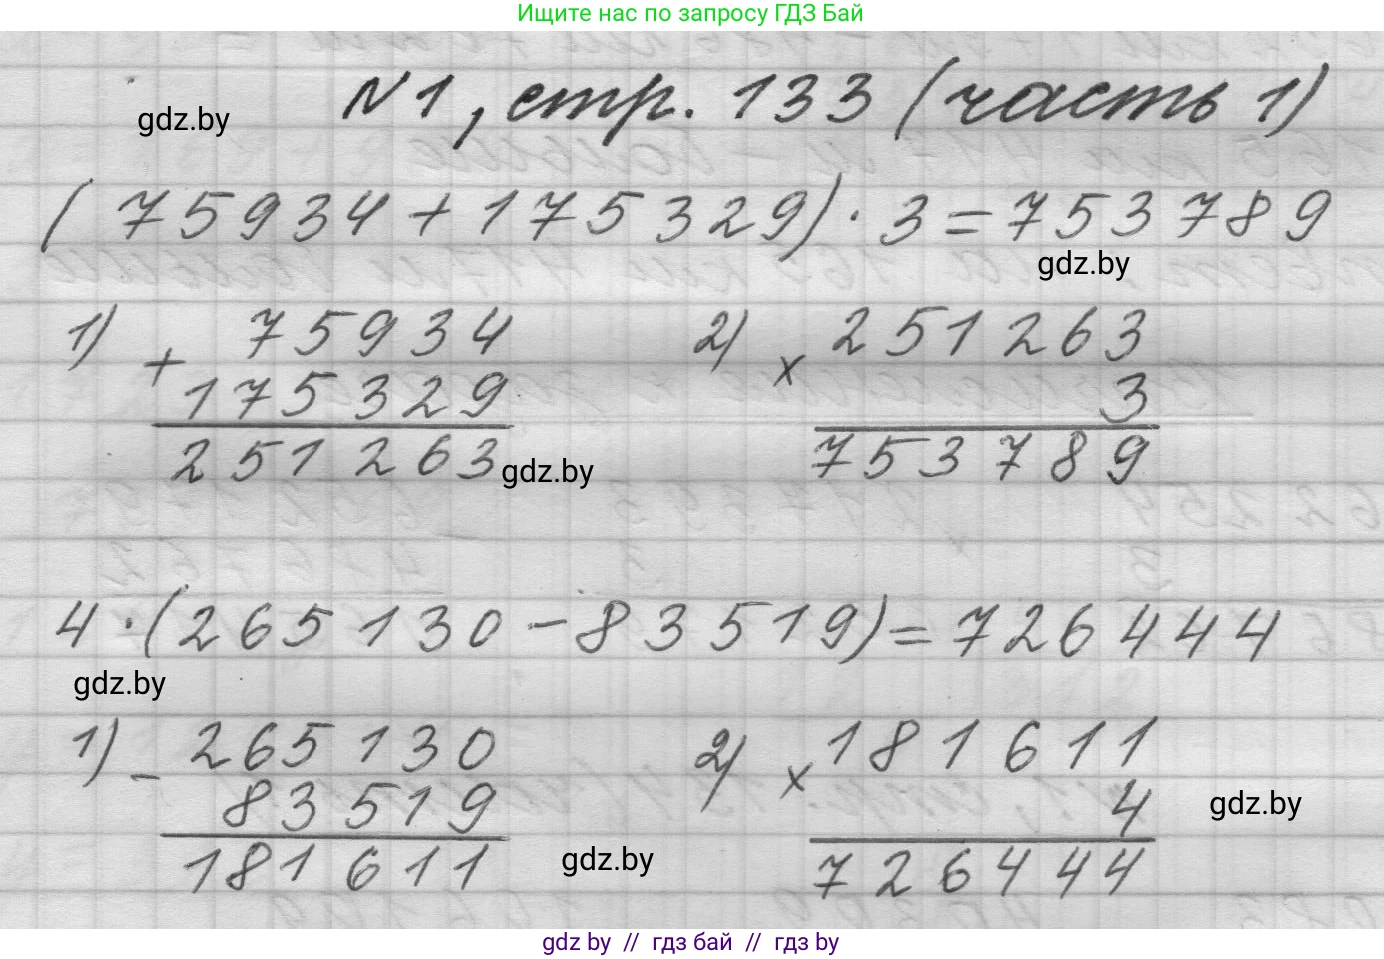 Ищите нас по запросу ГДЗ Бай
N1, стр. 133 (часть 1)
gdz.by
(75934+175329)·3=753789
gdz.by
1) + 75934 2) x 251263
175329 3
251263 753789
gdz.by
4·(265130-83519)=726444
gdz.by
1) - 265130 2) x 181611
83519 4
gdz.by
181611 726444
gdz.by
gdz by // гдз бай // гдз by